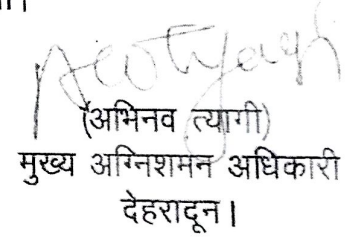 (अभिनव त्यागी)
मुख्य अग्निशमन अधिकारी
देहरादून।